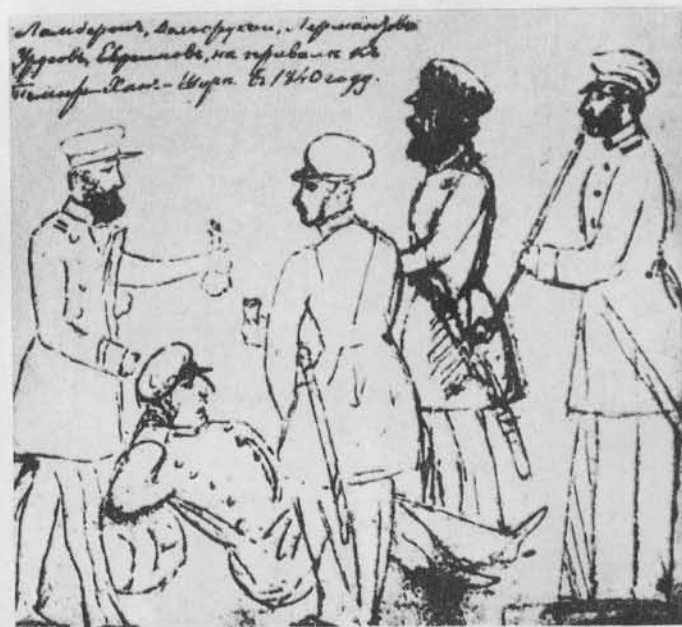 Ламбертъ, Долгорукій, Лермантовъ
Урусовъ, Евреиновъ, на привалѣ къ
Темиръ-Ханъ-Шурѣ. Въ 1840 году.